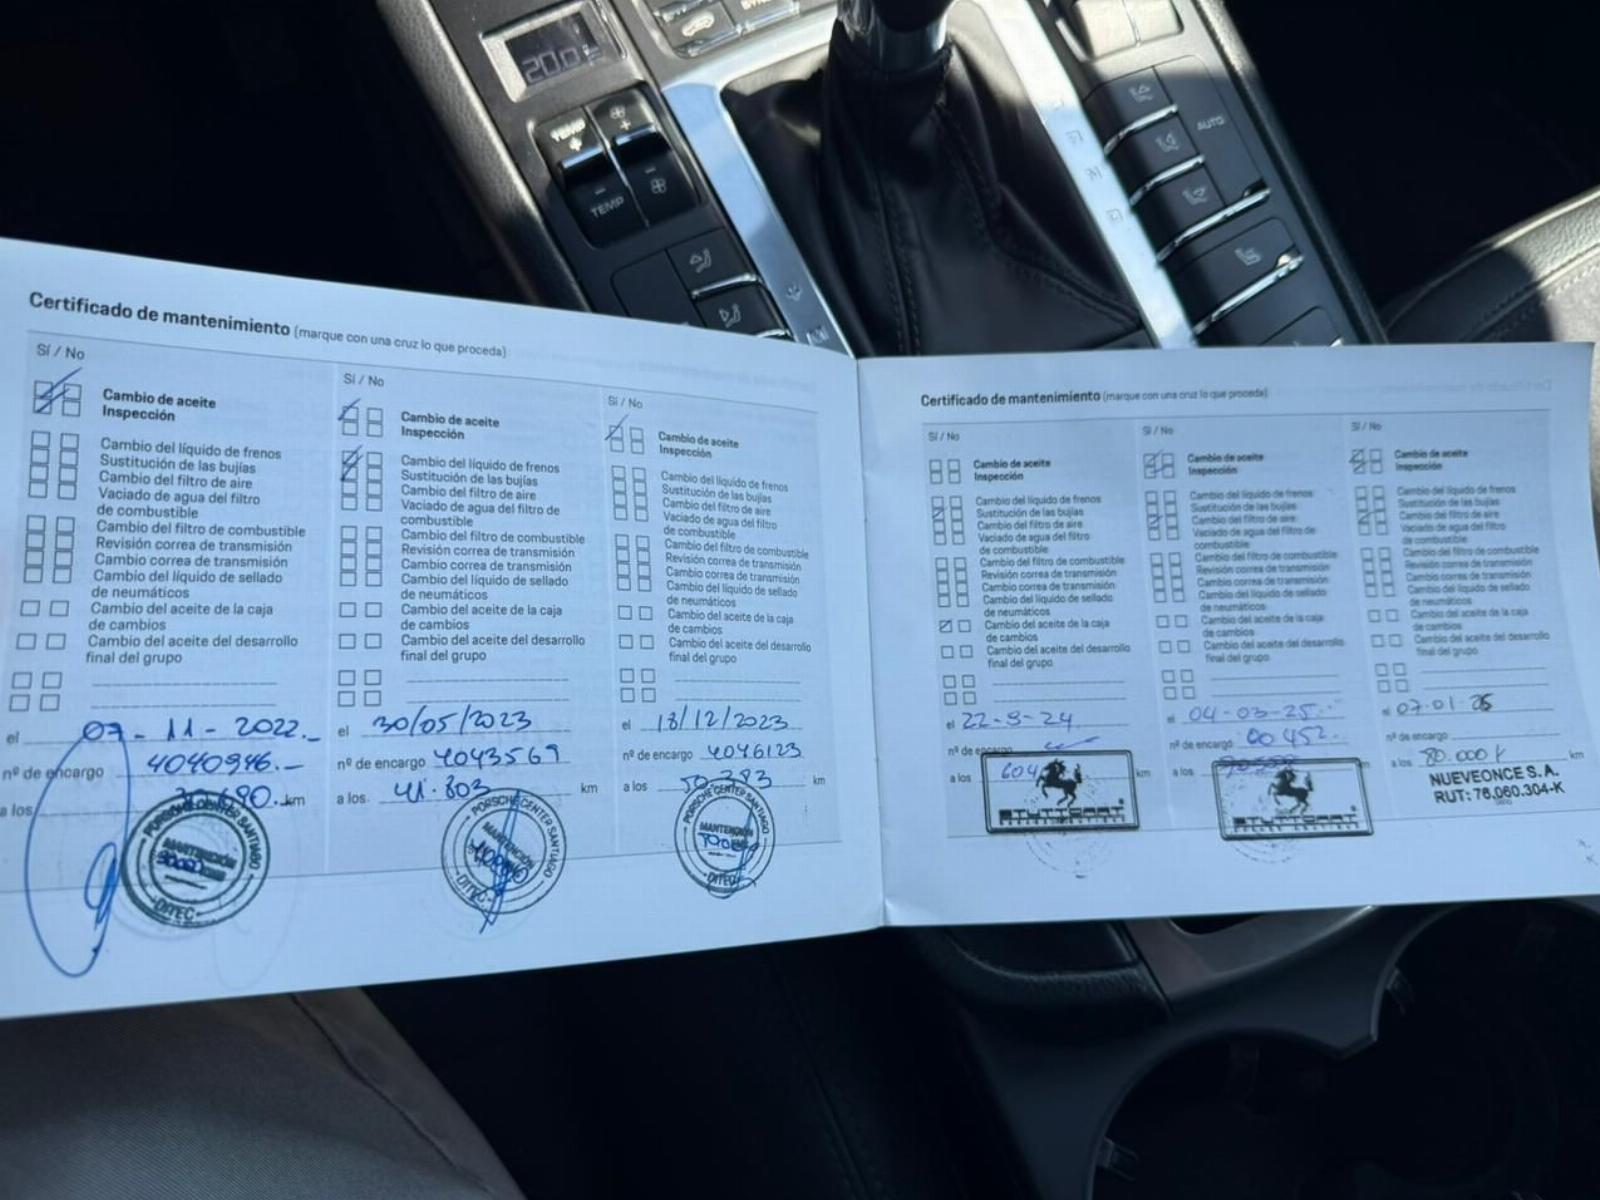 20.0
TEMP
TEMP
AUTO
Certificado de mantenimiento (marque con una cruz lo que proceda)
Sí / No
Cambio de aceite
Inspección
Cambio del líquido de frenos
Sustitución de las bujías
Cambio del filtro de aire
Vaciado de agua del filtro
de combustible
Cambio del filtro de combustible
Revisión correa de transmisión
Cambio correa de transmisión
Cambio del líquido de sellado
de neumáticos
Cambio del aceite de la caja
de cambios
Cambio del aceite del desarrollo
final del grupo
el 07-11-2022.-
nº de encargo 4040946.-
a los km
PORSCHE CENTER SANTIAGO
MANTENCIÓN
DITEC
Sí / No
Cambio de aceite
Inspección
Cambio del líquido de frenos
Sustitución de las bujías
Cambio del filtro de aire
Vaciado de agua del filtro de
combustible
Cambio del filtro de combustible
Revisión correa de transmisión
Cambio correa de transmisión
Cambio del líquido de sellado
de neumáticos
Cambio del aceite de la caja
de cambios
Cambio del aceite del desarrollo
final del grupo
el 30/05/2023
nº de encargo 4043569
a los. 41.803 km
PORSCHE CENTER SANTIAGO
MANTENCIÓN
DITEC
Sí / No
Cambio de aceite
Inspección
Cambio del líquido de frenos
Sustitución de las bujías
Cambio del filtro de aire
Vaciado de agua del filtro
de combustible
Cambio del filtro de combustible
Revisión correa de transmisión
Cambio correa de transmisión
Cambio del líquido de sellado
de neumáticos
Cambio del aceite de la caja
de cambios
Cambio del aceite del desarrollo
final del grupo
el 18/12/2023
nº de encargo 4046123
a los 50.383 km
PORSCHE CENTER SANTIAGO
MANTENCIÓN
DITEC
Certificado de mantenimiento (marque con una cruz lo que proceda)
Sí / No
Cambio de aceite
Inspección
Cambio del líquido de frenos
Sustitución de las bujías
Cambio del filtro de aire
Vaciado de agua del filtro
de combustible
Cambio del filtro de combustible
Revisión correa de transmisión
Cambio correa de transmisión
Cambio del líquido de sellado
de neumáticos
Cambio del aceite de la caja
de cambios
Cambio del aceite del desarrollo
final del grupo
el 22-8-24
nº de encargo
a los 604 km
STUTTGART
Sí / No
Cambio de aceite
Inspección
Cambio del líquido de frenos
Sustitución de las bujías
Cambio del filtro de aire
Vaciado de agua del filtro de
combustible
Cambio del filtro de combustible
Revisión correa de transmisión
Cambio correa de transmisión
Cambio del líquido de sellado
de neumáticos
Cambio del aceite de la caja
de cambios
Cambio del aceite del desarrollo
final del grupo
el 04-03-25.
nº de encargo 00452-
a los km
STUTTGART
Sí / No
Cambio de aceite
Inspección
Cambio del líquido de frenos
Sustitución de las bujías
Cambio del filtro de aire
Vaciado de agua del filtro
de combustible
Cambio del filtro de combustible
Revisión correa de transmisión
Cambio correa de transmisión
Cambio del líquido de sellado
de neumáticos
Cambio del aceite de la caja
de cambios
Cambio del aceite del desarrollo
final del grupo
el 07.01
nº de encargo
a los 80.000 km
NUEVEONCE S.A.
RUT: 76.060.304-K